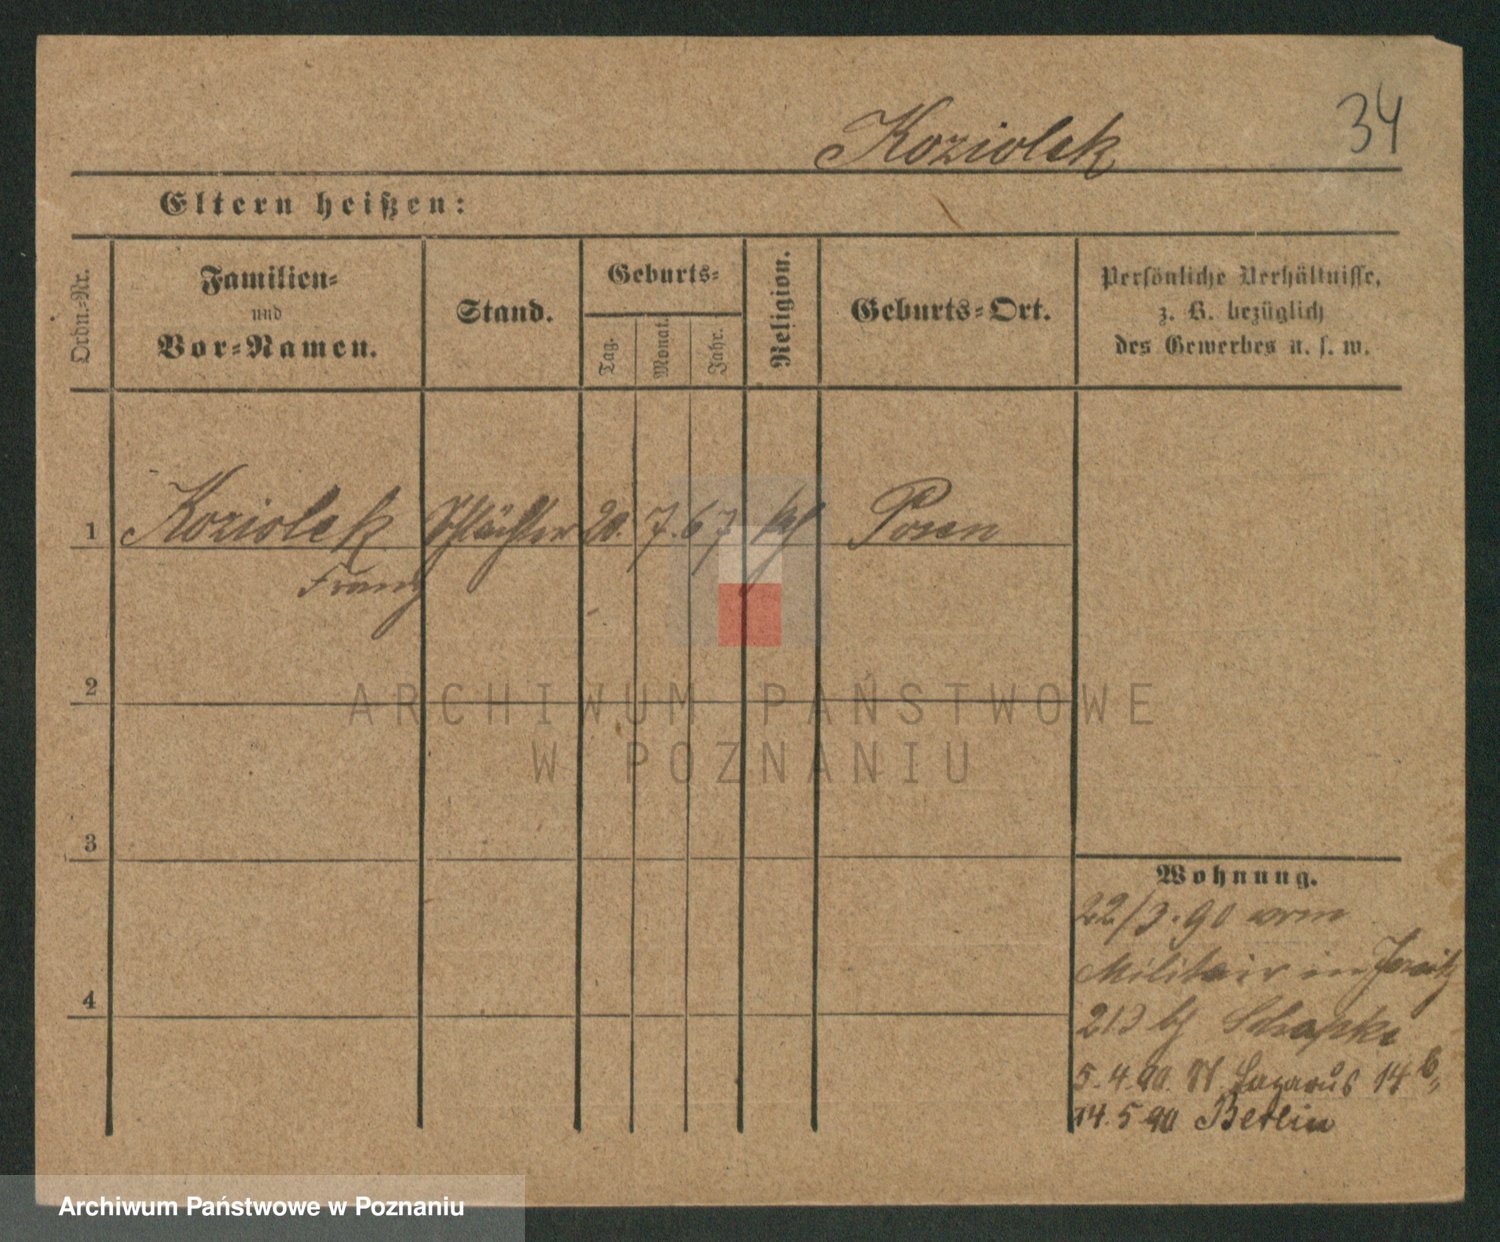 Koziolek
34
Eltern heißen:
Ordn.-Nr.
Familien-
und
Vor-Namen.
Stand.
Geburts-
Tag.
Monat.
Jahr.
Religion.
Geburts-Ort.
Persönliche Verhältnisse,
z. B. bezüglich
des Gewerbes u. s. w.
1 Koziolek Schlächter 20. 7. 67 kth Posen
Franz
2
ARCHIWUM PAŃSTWOWE
W POZNANIU
3
4
Wohnung.
22/3. 90 vom
Militair in Jersitz
213 bei
5. 4. 90. St. Lazarus 14 b,
14. 5 90 Berlin
Archiwum Państwowe w Poznaniu